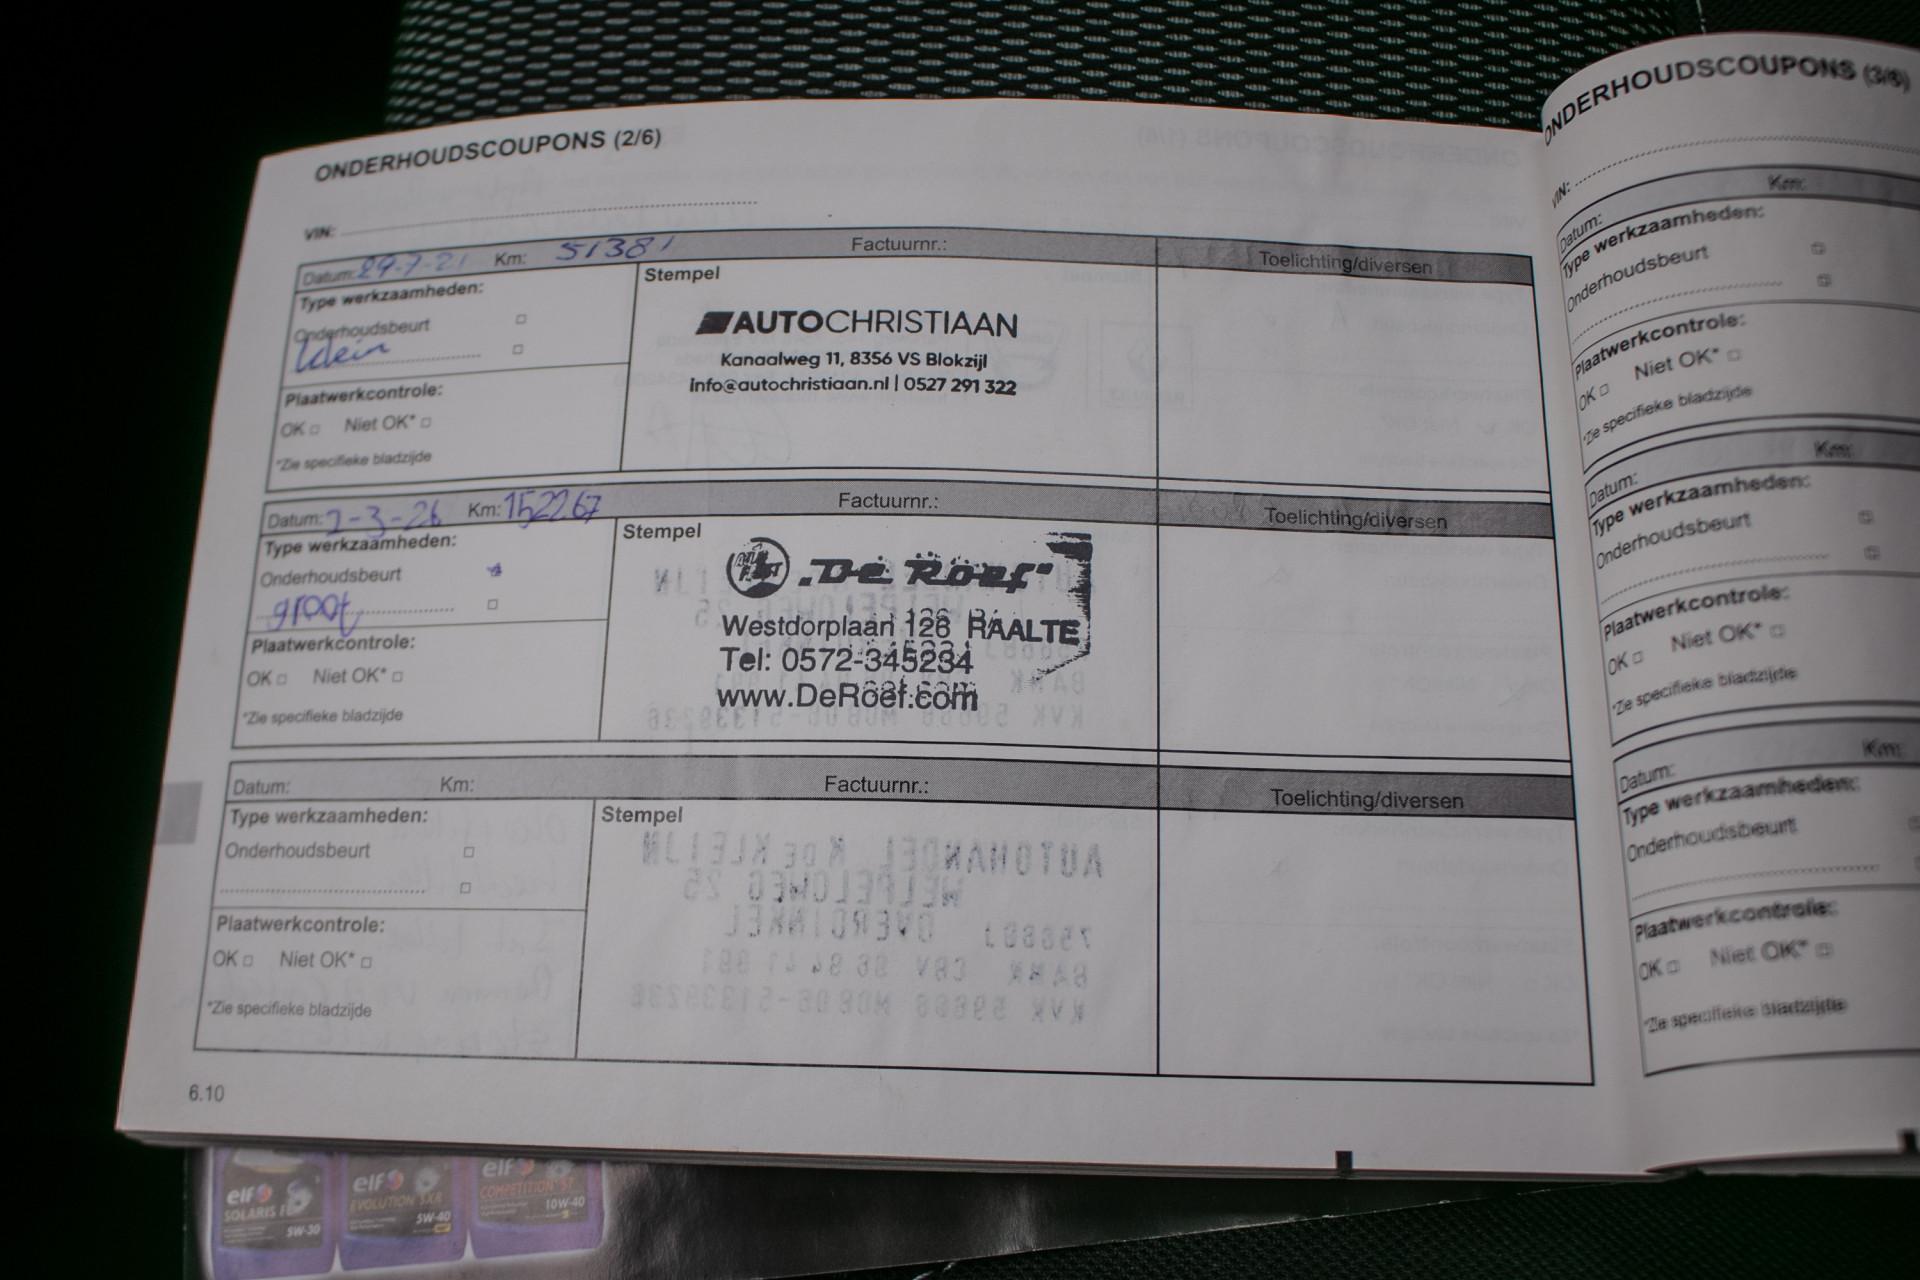 ONDERHOUDSCOUPONS (2/6)
VIN:
Datum: 29-7-21 Km: 51381 Factuurnr.: Toelichting/diversen
Type werkzaamheden:
Stempel
Onderhoudsbeurt
klein
AUTOCHRISTIAAN
Kanaalweg 11, 8356 VS Blokzijl
Info@autochristiaan.nl | 0527 291 322
Plaatwerkcontrole:
OK Niet OK*
*Zie specifieke bladzijde
Datum: 2-3-26 Km: 152267 Factuurnr.: Toelichting/diversen
Type werkzaamheden:
Stempel
Onderhoudsbeurt
groot
„De Roef"
Westdorplaan 126 RAALTE
Tel: 0572-345234
www.DeRoef.com
Plaatwerkcontrole:
OK Niet OK*
*Zie specifieke bladzijde
Datum: Km: Factuurnr.: Toelichting/diversen
Type werkzaamheden:
Stempel
Onderhoudsbeurt
AUTOHANDEL K DE KLEIJN
WELPELOWEG 25
OVERDINKEL
Plaatwerkcontrole:
OK Niet OK*
*Zie specifieke bladzijde
6.10
ONDERHOUDSCOUPONS (3/6)
VIN:
Datum: Km:
Type werkzaamheden:
Onderhoudsbeurt
Plaatwerkcontrole:
OK Niet OK*
*Zie specifieke bladzijde
Datum: Km:
Type werkzaamheden:
Onderhoudsbeurt
Plaatwerkcontrole:
OK Niet OK*
*Zie specifieke bladzijde
Datum: Km:
Type werkzaamheden:
Onderhoudsbeurt
Plaatwerkcontrole:
OK Niet OK*
*Zie specifieke bladzijde
elf
SOLARIS
5W-30
elf
EVOLUTION SXR
5W-40
elf
COMPETITION ST
10W-40